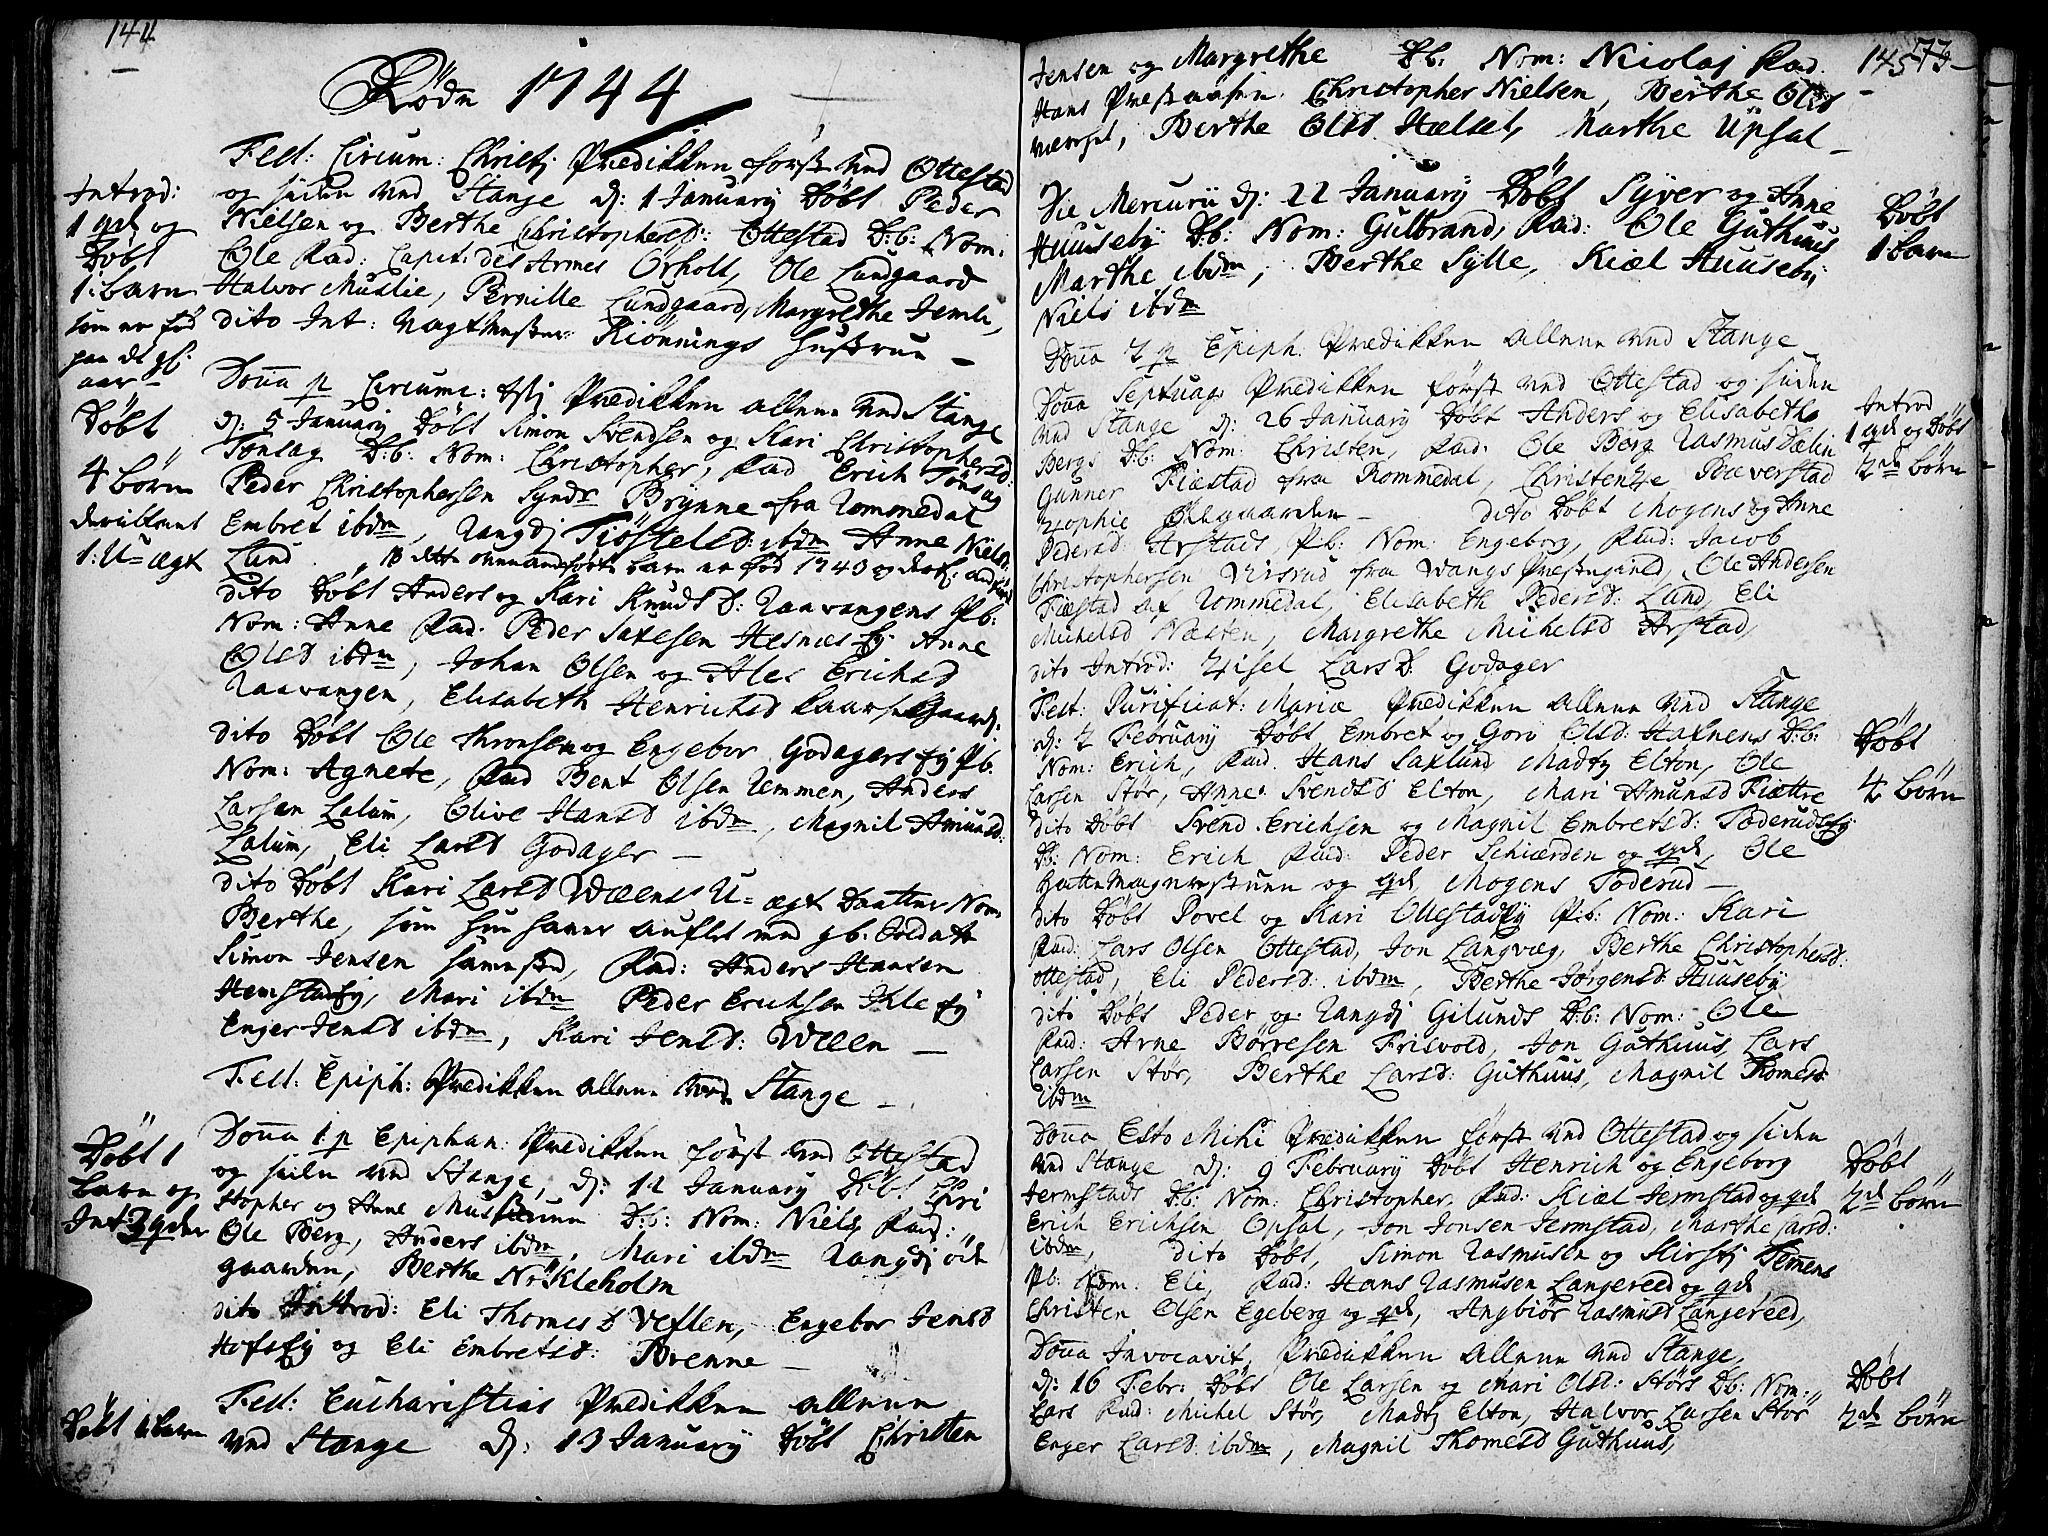 144
Födn 1744
Fest: Circum: Christj Prædikken først ved Ottestad
og siden ved Stange d: 1 Januarij Döbt Peder
Nielsen og Berthe Christophersd: Ottestad D:b: Nom:
Ole Fad: Capit: des Armes Örholt, Ole Lundgaard
Halvor Muslie, Pernille Lundgaard, Margrethe Jemli,
dito Int: Kiönnings Hustrue —
Introd:
1 qvd og
Döbt
1: barn
som er fød
paa dt gl:
aar —
Dōna p Circumc: Prædikken allene ved Stange
d: 5 Januarij Döbt Simon Svendsen og Kari Christophersd:
Tønsag D:b: Nom: Christopher, Fad Erich Tönsag
Peder Christophersen Brynne fra Rommedal
Embret ibdm, Rangdj Tjöstelsd: ibdm Anne Nielsd:
Lund barn er fød 1743
Döbt
4 börn
deriblant
1: U=ægt
dito Döbt Anders og Kari Knudsd: Raavangens P:b:
Nom: Anne Fad. Peder Saxesen Hesnæs Ej Anne
Olsd ibdm, Johan Olsen og Ales Erichsd
Raavangen, Elisabeth Henrichsd
dito Döbt Ole Thronsen og Engebor Godagers Ej P:b.
Nom: Agnete, Fad Bent Olsen Remmen, Anders
Larsen Lalum, Olive Hansd ibdm, Magnil Amunsd:
Lalum, Eli Larsd Godager —
dito Döbt Kari Larsd Weens U=ægt Daatter Nom:
Berthe, som hun haver auflet med gb. Soldat
Simon Jensen sammestd, Fad: Anders Hansen
Hemstad Ej, Mari ibdm Peder Erichsen Ihle Ej
Enger Jensd ibdm, Kari Jensd: Ween —
Fest: Epiph: Prædikken allene ved Stange —
Dōna 1 p Epiphan: Prædikken först ved Ottestad
og siden ved Stange, d: 12 Januarij Döbt Chri
stopher og Anne D:b: Nom: Niels, Fad:
Ole Berg, Anders ibdm, Mari ibdm Rangdj öde
gaarden, Berthe Nökleholm
Döbt 1
barn og
Int: 3 qvder
dito Introd: Eli Thomesd Veflen, Engebor Jensd
Hofs Ej og Eli Embretsd: Brenne —
Fest: Eucharistias Prædikken allene
ved Stange d: 13 Januarij Döbt Christen
Döbt 1 barn
145 73
Jensen og Margrethe D:b: Nom: Nicolaj Fad.
Hans Christopher Nielsen, Berthe Olsd
Berthe Olsd. Hælset, Marthe Upsal —
Die Mercurii d: 22 Januarij Döbt Syver og Anne
Huuseby D:b: Nom: Gulbrand, Fad: Ole Guthuus
Marthe ibdm, Berthe Sylle, Kiæl Huuseby
Niels ibdm
Döbt
1 barn
Dōna 2 p Epiph: Prædikken allene ved Stange
Dōna Septuag: Prædikken först ved Ottestad og siden
ved Stange d: 26 Januarij Döbt Anders og Elisabeths
Bergs D:b: Nom: Christen, Fad: Ole Berg Rasmus Dælin
Gunner Fiæstad fra Rommedal, Christentze Bæverstad
Zophie Ödegaarden — dito Döbt Mogens og Anne
Pedersd Arstads, P:b: Nom: Engeborg, Fad: Jacob
Christophersen Virsrud fra Wangs Præstegield, Ole Andersen
Fiæstad af Rommedal, Elisabeth Pedersd: Lund, Eli
Michelsd Næsten, Margrethe Michelsd Arstad,
dito Introd: Zisel Larsd: Godager
Introd
1 qvd og Döbt
2de börn
Fest: Purificat: Mariæ Prædikken allene ved Stange
d: 2 Februarij Döbt Embret og Goro Olsd: Haknens D:b:
Nom: Erich, Fad. Hans Saxlund, Madtz Elton, Ole
Larsen Stör, Anne Svendsd Elton, Mari Amunsd Fiættre
dito Döbt Svend Erichsen og Magnil Embretsd: Töderuds Ej
D:b: Nom: Erich Fad: Peder Schiærden og qvd, Ole
og qvd, Mogens Töderud —
dito Döbt Povel og Kari Ottestad Ej P:b: Nom: Kari
Fad: Lars Olsen Ottestad, Jon Langvæg, Berthe Christophersd:
Ottestad, Eli Pedersd: ibdm, Berthe Jörgensd: Huuseby
dito Döbt Peder og Rangdj Gilunds D:b: Nom: Ole
Fad: Arne Börresen Frisvold, Jon Guthuus, Lars
Larsen Stör, Berthe Larsd: Guthuus, Magnil Thomesd:
ibdm
Döbt
4 börn
Dōna Esto Mihi Prædikken först ved Ottestad og siden
ved Stange d: 9 February Döbt Henrich og Engeborg
Jermstads D:b: Nom: Christopher, Fad: Kiæl Jermstad og qvd
Erich Erichsen Opsal, Jon Jonsen Jermstad, Marthe Larsd:
ibdm, dito Döbt, Simon Rasmusen og Kirstj Temens
P:b: Nom: Eli, Fad: Hans Rasmusen Langereed og qvd,
Christen Olsen Egeberg og qvd, Angbiör Rasmusd Langereed,
Döbt
2de börn
Dōna Invocavit, Prædikken allene ved Stange,
d: 16 Febr: Döbt Ole Larsen og Mari Olsd: Störs D:b: Nom:
Lars Fad: Michel Stör, Madtz Elton, Halvor Larsen Stör
Enger Larsd. ibdm, Magnil Thomesd Guthuus,
Döbt
2de börn